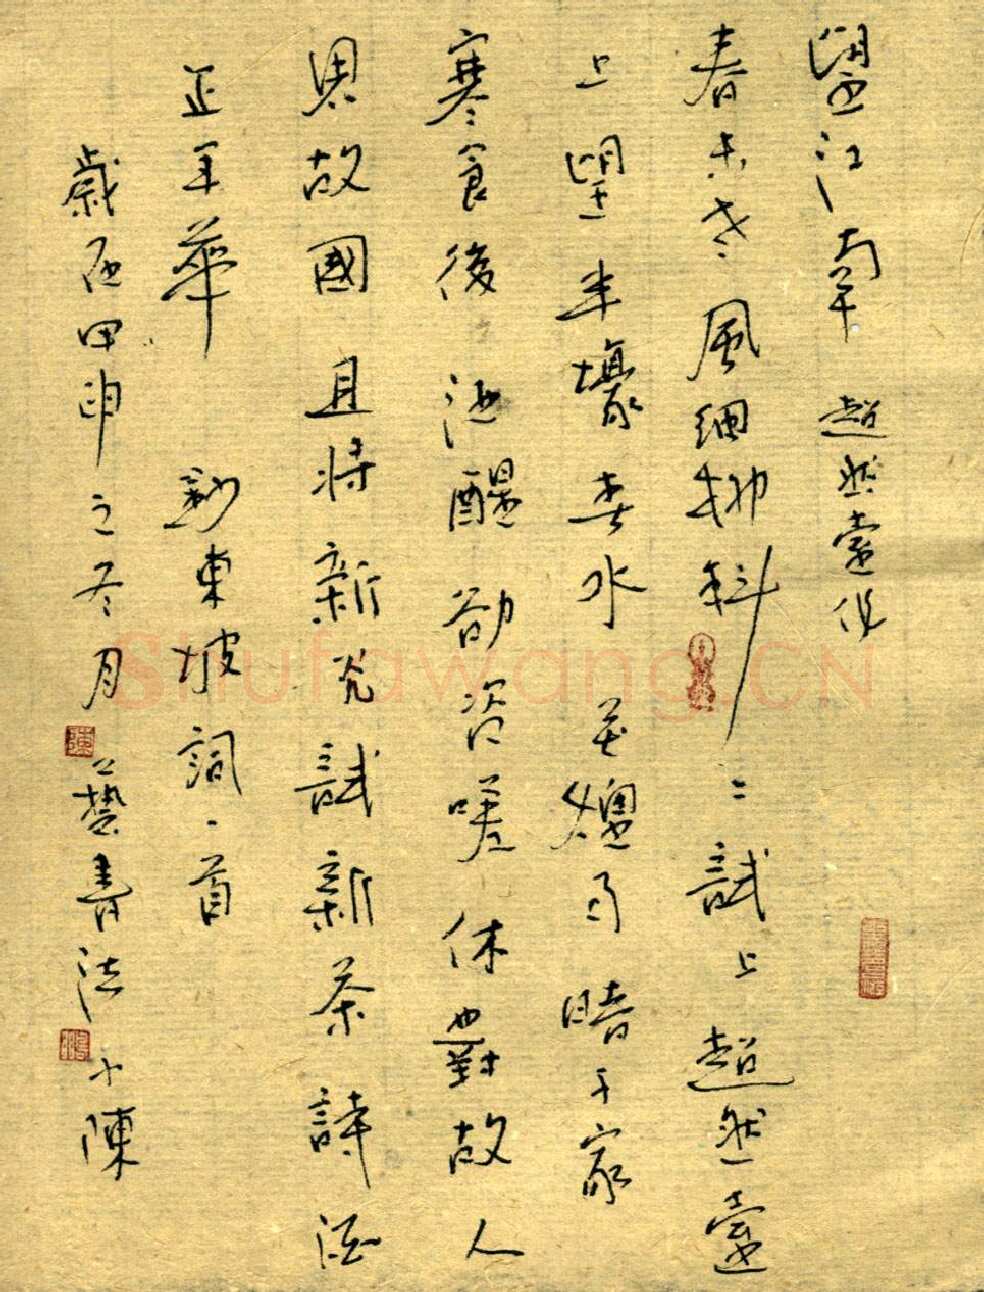 望江南 超然臺作
春未老 風細柳斜〻 試上超然臺
上望半壕春水 花 煙雨暗千家
寒食後 酒醒卻咨嗟 休對故人
思故國 且將新火試新茶 詩酒
正年華 鈔東坡詞一首
歲在甲申之冬月 藝書法 小陳
Shufawang.CN